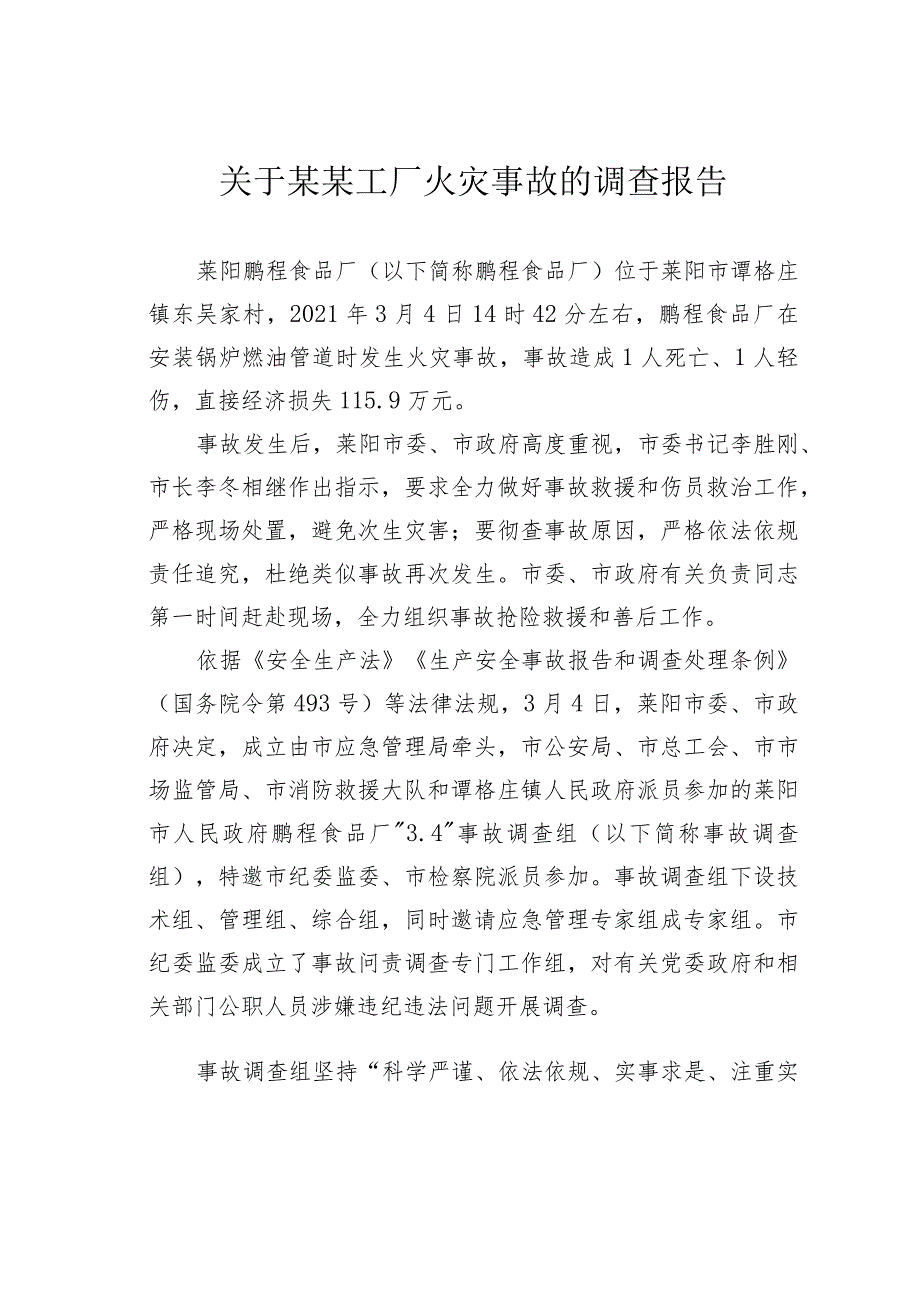 关于某某工厂火灾事故的调查报告
莱阳鹏程食品厂（以下简称鹏程食品厂）位于莱阳市谭格庄
镇东吴家村，2021 年 3 月 4 日 14 时 42 分左右，鹏程食品厂在
安装锅炉燃油管道时发生火灾事故，事故造成 1 人死亡、1 人轻
伤，直接经济损失 115.9 万元。
事故发生后，莱阳市委、市政府高度重视，市委书记李胜刚、
市长李冬相继作出指示，要求全力做好事故救援和伤员救治工作，
严格现场处置，避免次生灾害；要彻查事故原因，严格依法依规
责任追究，杜绝类似事故再次发生。市委、市政府有关负责同志
第一时间赶赴现场，全力组织事故抢险救援和善后工作。
依据《安全生产法》《生产安全事故报告和调查处理条例》
（国务院令第 493 号）等法律法规，3 月 4 日，莱阳市委、市政
府决定，成立由市应急管理局牵头，市公安局、市总工会、市市
场监管局、市消防救援大队和谭格庄镇人民政府派员参加的莱阳
市人民政府鹏程食品厂"3.4"事故调查组（以下简称事故调查
组），特邀市纪委监委、市检察院派员参加。事故调查组下设技
术组、管理组、综合组，同时邀请应急管理专家组成专家组。市
纪委监委成立了事故问责调查专门工作组，对有关党委政府和相
关部门公职人员涉嫌违纪违法问题开展调查。
事故调查组坚持“科学严谨、依法依规、实事求是、注重实